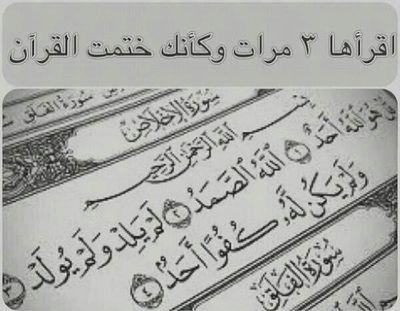 اقرأها ٣ مرات وكأنك ختمت القرآن
سُورَةُ الفَلَقِ
سُورَةُ الإِخْلَاصِ
بِسْمِ اللَّهِ الرَّحْمَٰنِ الرَّحِيمِ
هُوَ اللَّهُ أَحَدٌ ١ اللَّهُ الصَّمَدُ ٢ لَمْ يَلِدْ وَلَمْ يُولَدْ ٣
وَلَمْ يَكُن لَّهُ كُفُوًا أَحَدٌ ٤
سُورَةُ الفَلَقِ